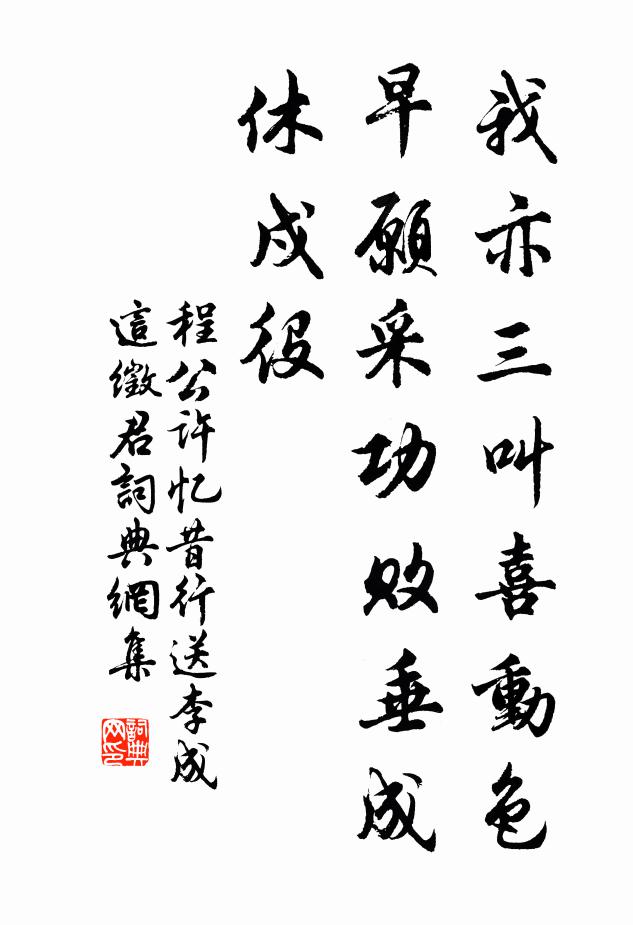 我亦三叫喜動色
早願采功敗垂成
休戍役
程公许忆昔行送李成
這徵君詞典網集
詞典网印